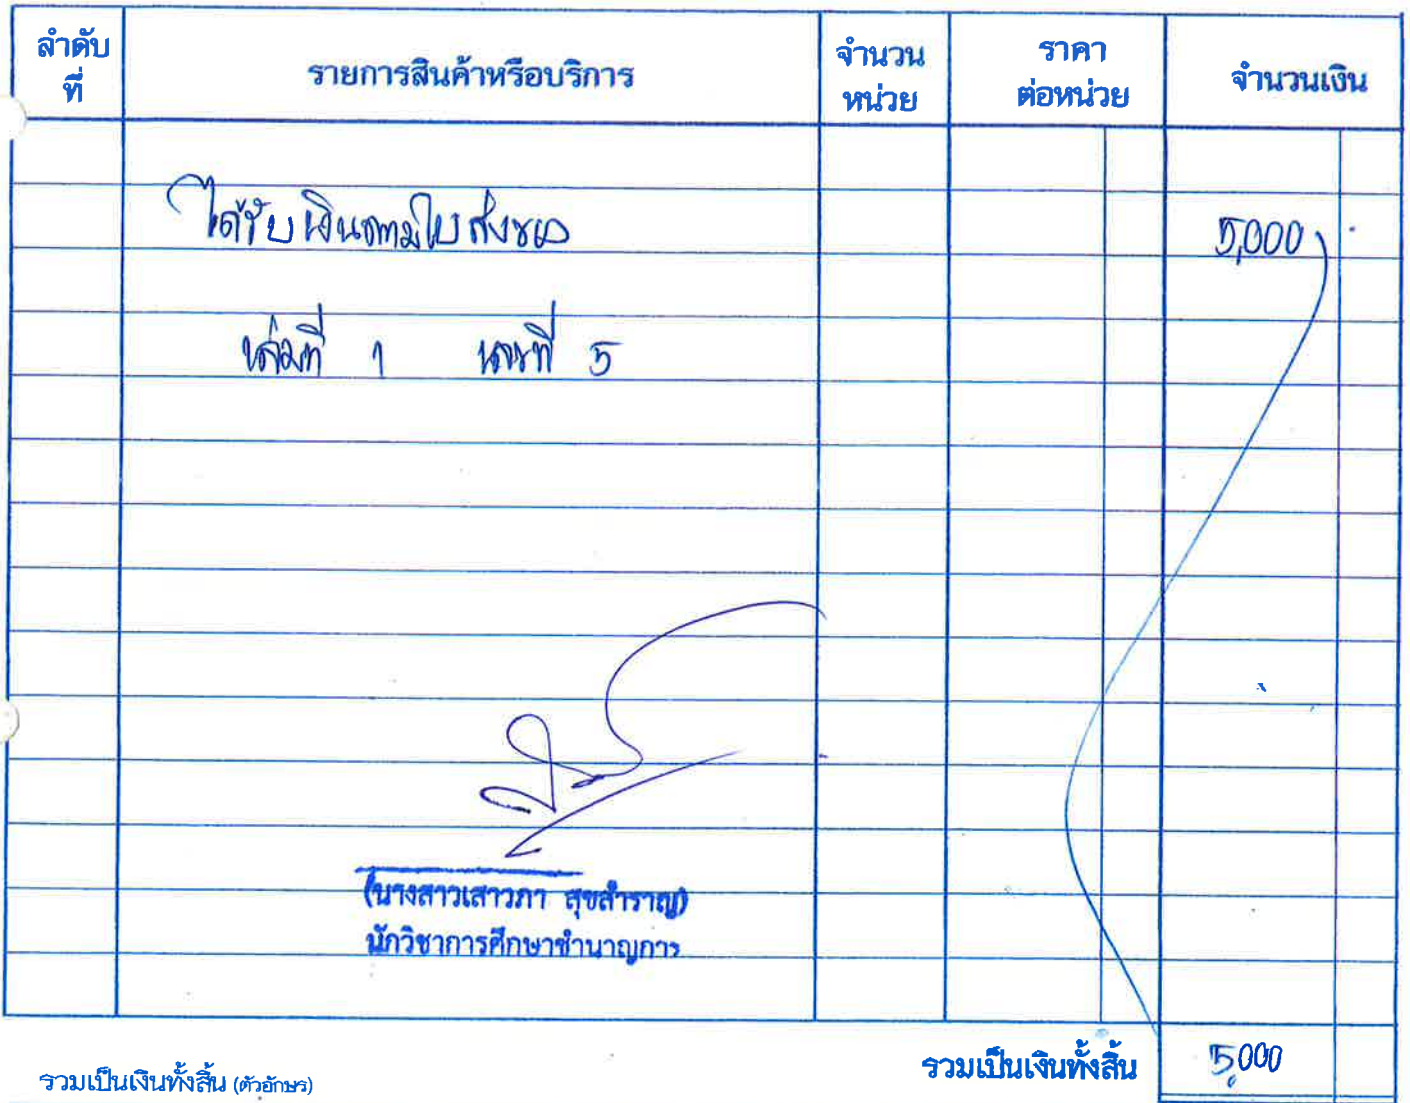 ลำดับที่ รายการสินค้าหรือบริการ จำนวนหน่วย ราคาต่อหน่วย จำนวนเงิน
ได้รับเงินตามใบส่งของ 5,000
เล่มที่ 1 เลขที่ 5
(นางสาวเสาวภา สุขสำราญ)
นักวิชาการศึกษาชำนาญการ
รวมเป็นเงินทั้งสิ้น 5,000
รวมเป็นเงินทั้งสิ้น (ตัวอักษร)